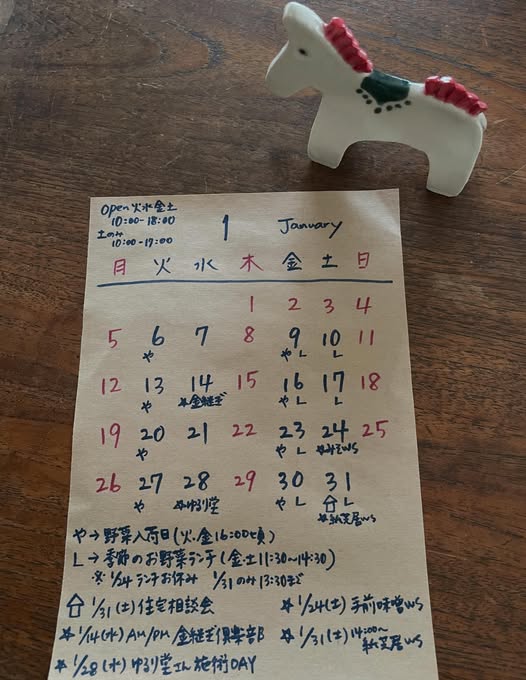 open 火水金土
10:00-18:00
土のみ
10:00-17:00
1 January
月 火 水 木 金 土 日
1 2 3 4
5 6 7 8 9 10 11
や や L L
12 13 14 15 16 17 18
や ☆金継ぎ や L L
19 20 21 22 23 24 25
や や L ☆みそWS
26 27 28 29 30 31
や ☆ゆるり堂 や L L
☆紙芝居WS
や→野菜入荷日(火、金16:00頃)
L→季節のお野菜ランチ(金土11:30〜14:30)
※1/24ランチお休み 1/31のみ13:30まで
1/31(土)住宅相談会
☆1/14(水)AM/PM 金継ぎ倶楽部
☆1/28(水)ゆるり堂さん施術DAY
☆1/24(土)手前味噌WS
☆1/31(土)14:00〜
紙芝居WS